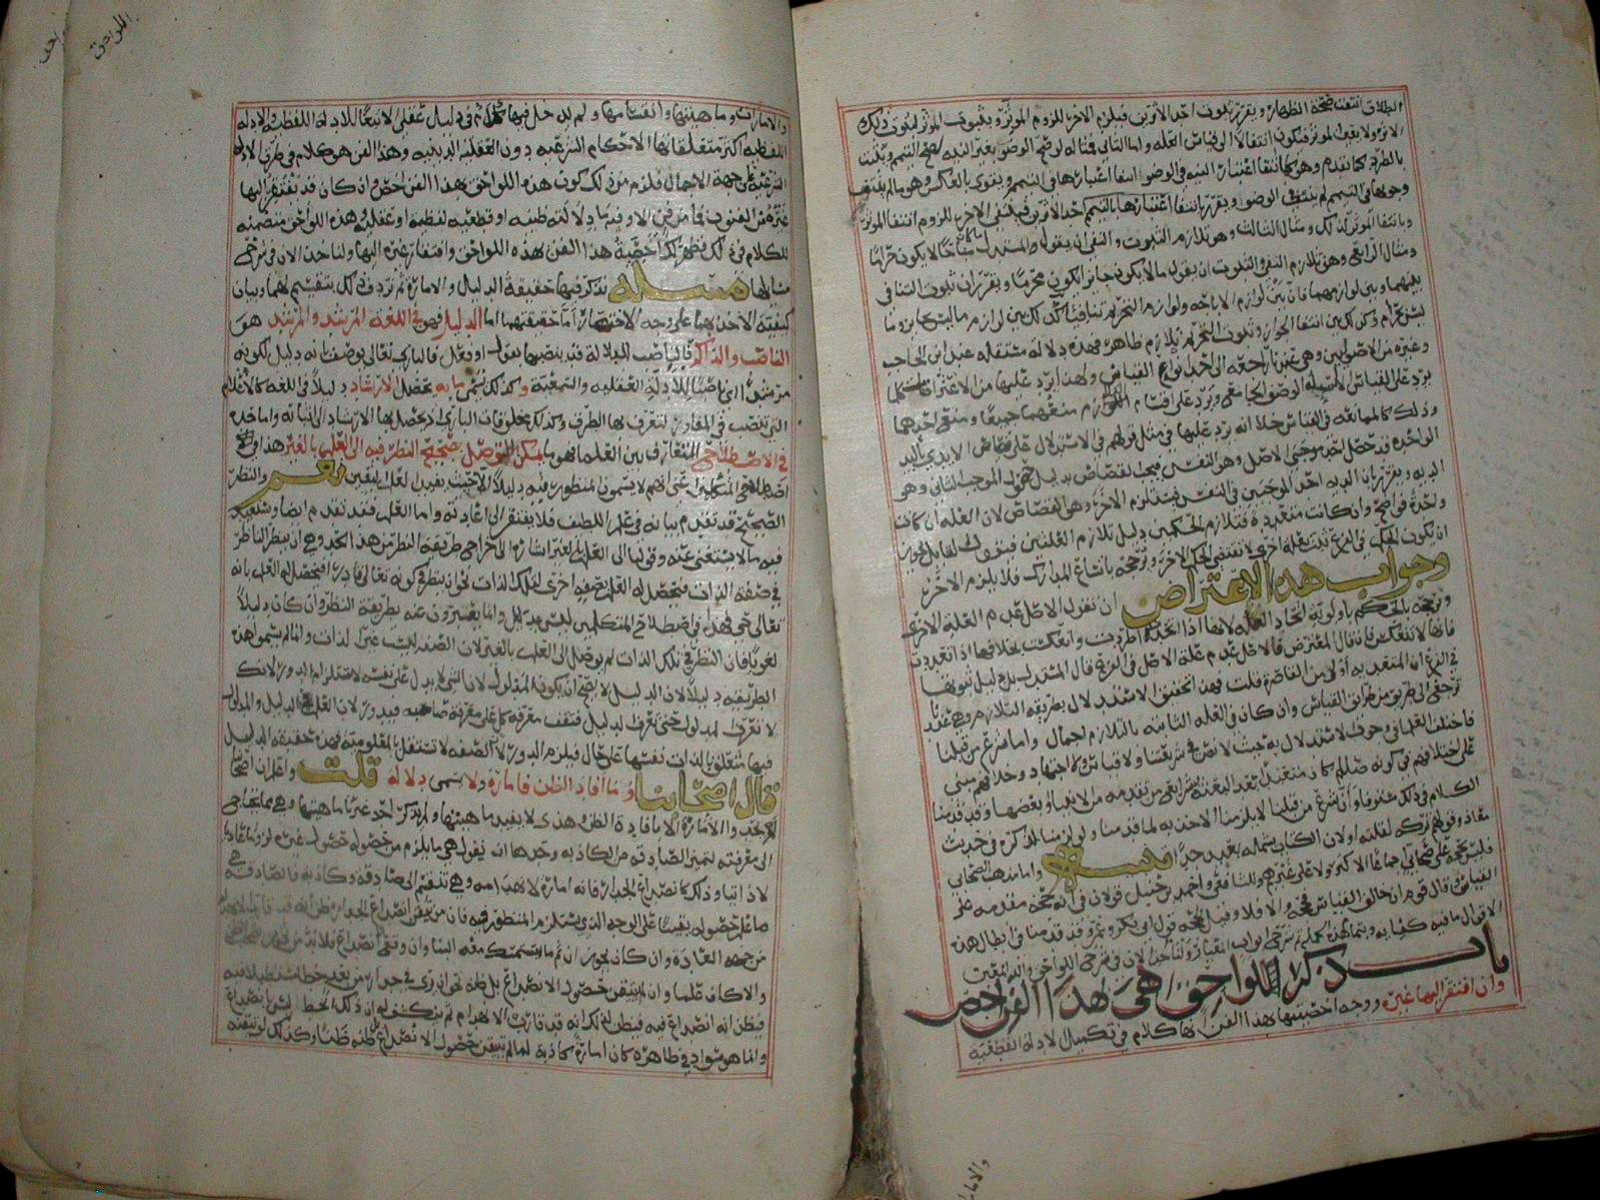 الطلاق انتفت صحة الظهار ويقرر بثبوت احد الاثرين فيلزم الاخر للزوم المؤثر وبثبوت المؤثر لثبوت ذلك
الاثر ولا يعين المؤثر فيكون انتقالا الى قياس العلة واما الثاني فمثاله لو صح الوضوء بغير النية لصح التيمم ويثبت
بالطرد كما تقدم وهو كما انتفا اعتبار النية في الوضوء انتفا اعتبارها في التيمم ويقوى بالعكس وهو ما لم ينتف
وجوبها في التيمم لم ينتف في الوضوء ويقرر بانتفا اعتبارها بالتيمم احد الاثرين فينتفي الاخر للزوم انتفا المؤثر
وبانتفا المؤثر لذلك ومثال الثالث وهو تلازم الثبوت والنفي ان يقول المستدل ما كان مباحا لا يكون حراما
ومثال الرابع وهو تلازم النفي والثبوت ان يقول ما لا يكون جايزا يكون محرما ويقرر ان ثبوت التنافي
بينهما وبين لوازمهما فان بين لوازم الاباحة ولوازم التحريم تنافيا
ليس بحرام وكذلك بين انتفا الجواز وثبوت التحريم تلازم ظاهر فهذه دلالة مستقلة عند ابن الحاجب
وغيره من الاصوليين وهي عندنا راجعة الى احد انواع القياس ولهذا يرد عليها من الاعتراضات كلما
يرد على القياس الا اسيلة الوصف الجامع ويرد على اقسام التلازم منعهما جميعا ومنع احدهما
وذلك كالممانعة في القياس خلا انه يرد عليها في مثل قولهم في الاستدلال على قصاص الايدي باليد
الواحدة قد حصل احد موجبي الاصل وهو النفس فيجب القصاص بدليل حصول الموجب الثاني وهو
الدية ويقرر بان الدية احد الموجبين في النفس فيستلزم الاخر وهو القصاص لان العلة ان كانت
واحدة فواضح وان كانت متعددة فتلازم الحكمين دليل تلازم العلتين فنقول لقايل يجوز
ان يكون الحكم في الفرع ثبت بعلة اخرى لا تقتضي الحكم الاخر ويرجحه باتساع المدارك فلا يلزم الاخر
وجواب هذا الاعتراض ان نقول الاصل عدم العلة الاخرى
ونرجحه بالحكم باولوية اتحاد العلة لانها اذا اتحدت اطردت وانعكست بخلافها اذا تعددت
فانها لا تنعكس فان قال المعترض فالاصل عدم علة الاصل في الفرع قال المستدل
في الفرع ان المتعدية أولى من القاصرة قلت فهذا تحقيق الاستدلال بطريقة التلازم وهي عندنا
ترجع الى طريق من طرائق القياس وان كان في العلة الثابتة بالتلازم اجمال واما شرع من قبلنا
فاختلف العلما في جواز الاستدلال به حيث لا نص في شريعتنا ولا قياس ولا اجتهاد وخلافهم مبني
على اختلافهم في كونه صلعم كان متعبدا بعد البعثة بشرايع من تقدمه من الانبيا او بعضها وقد قدمنا
الكلام في ذلك مستوفا وان شرع من قبلنا لا يلزمنا الاخذ به لما قدمنا ولو لزمنا لذكره في حديث
معاذ وقولهم تركه لقلته او لان الكتاب يشمله بعيد جدا مسئلة واما مذهب الصحابي
فليس بحجة على صحابي اجماعا الا كثر ولا على غيرهم وللشافعي واحمد بن حنبل قولان في انه حجة مقدمة على
القياس وقال قوم ان خالف القياس فحجة والا فلا وقيل الحجة قول ابي بكر وعمر وقد قدمنا في ابطال هذه
الاقوال ما فيه كفاية وبتمام هذه الجملة تم شرح ابواب القياس ولنأخذ الان في شرح اللواحق والله المعين
باب ذكر اللواحق هي بهذا الفن اخص
وان افتقر اليها غيره ووجه اخصيتها بهذا الفن انها كلام في تكميل الادلة القطعية
والامارات
والامارات وماهيتها وانقسامها ولم يدخل فيها
اللفظية اكثر متعلقاتها الاحكام الشرعية دون العقلية الدينية وهذا الفن هو كلام في طرق الادلة
الشرعية على جهة الاجمال فلزم من ذلك كون هذه اللواحق بهذا الفن اخص وان كان قد يفتقر اليها
غيره من الفنون فما من فن الا وفيه ما دلالته ظنية او قطعية لفظية او عقلية وهذه اللواحق متضمنة
للكلام في ذلك فظهر لك اخصية هذا الفن بهذه اللواحق وافتقار غيره اليها ولناخذ الان في شرح
مسايلها مسئلة نذكر فيها حقيقة الدليل والامارة ثم نردف ذلك بتقسيمهما وبيان
كيفية الاخذ بهما على وجه الاختصار أما حقيقتهما اما الدليل فهو في اللغة المرشد والمرشد هو
الناصب والذاكر فالناصب للدلالة قد ينصبها بقول او فعل فالباري تعالى يوصف بانه دليل لكونه
مرشدا اي ناصبا للادلة العقلية والسمعية وكذلك يسمى ما به تحصيل الارشاد دليلا في اللغة كالاعلام
التي تنصب في المفاوز لتعرف بها الطرق وكذلك مخلوقات الباري اذ يحصل بها الارشاد الى اثباته واما حده
في الاصطلاح المتعارف بين العلما فهو ما يمكن التوصل بصحيح النظر فيه الى العلم بالغير هذا في
اصطلاح المتكلمين اعني انهم لا يسمون المنظور فيه دليلا الا حيث يفيد العلم اليقين نعم والنظر
الصحيح قد تقدم بيانه في علم اللطيف فلا يفتقر الى اعادته واما العلم فقد تقدم ايضا وسنعيد
فيه ما لا يستغنى عنه وقولنا الى العلم بالغير اشارة الى اخراج طريقة النظر من هذا الحد وهي ان ينظر الناظر
في صفة الذات فيحصل له العلم بصفة اخرى لتلك الذات نحو ان ينظر في كونه تعالى قادرا فيحصل له العلم بانه
تعالى حي فهذا في اصطلاح المتكلمين ليس بدليل وانما يعبرون عنه بطريقة النظر وان كان دليلا
لغويا فان النظر في تلك الذات لم يوصل الى العلم بالغير لان الصفة ليست غير الذات وانما لم يسموا هذه
الطريقة دليلا لان الدليل لا يصح ان يكون المدلول لان الشي لا يدل على نفسه لاستلزامه الدور لانك
لا تعرف المدلول حتى تعرف الدليل فتقف معرفة كل على معرفة صاحبه فيدور لان العلم بالدليل والمدلول
فيها متعلق بالذات نفسها على حال فيلزم الدور لان الصفة لا تستقل بالمعلومية فهذه حقيقة الدليل
قال اصحابنا وما افاد الظن فامارة ولا يسمى دلالة قلت واعلم ان اصحابنا
لم يحدوا الامارة الا بافادة الظن وهذا لا يفيد ماهيتها ولم يذكر احد غيرنا ماهيتها وهي مما يحتاج
الى معرفته لتميز الصادقة من الكاذبة وحدها ان يقول هي ما يلزم من حصوله حصول غيره لزوما عاديا
لا ذاتيا وذلك كانصداع الجدار فانه امارة لانهدامه وهي تنقسم الى صادقة وكاذبة فالصادقة هي
ما علم حصوله يقينا على الوجه الذي يستلزم المنظور فيه فان من تيقن انصداع الجدار ظن انه قد قارب الانهدام
من جهة العادة وان كان يجوز ان ثم ما يستمسك معه البنا وان وقع انصداع فلا بد من
والا كاف ظنا وان لم يتيقن حصول الانصداع بل ظنه نحو ان يرى في جدار من بعيد خطا مستطيلا فيه
فيظن انه انصداع فيه فيظن لذلك انه قد قارب الانهدام ثم ينكشف له ان ذلك الخط ليس بانصداع
وانما هو سواد في ظاهره كان امارة كاذبة لما لم يتيقن حصول الانصداع بل ظنه ظنا وكذلك لو تيقنه